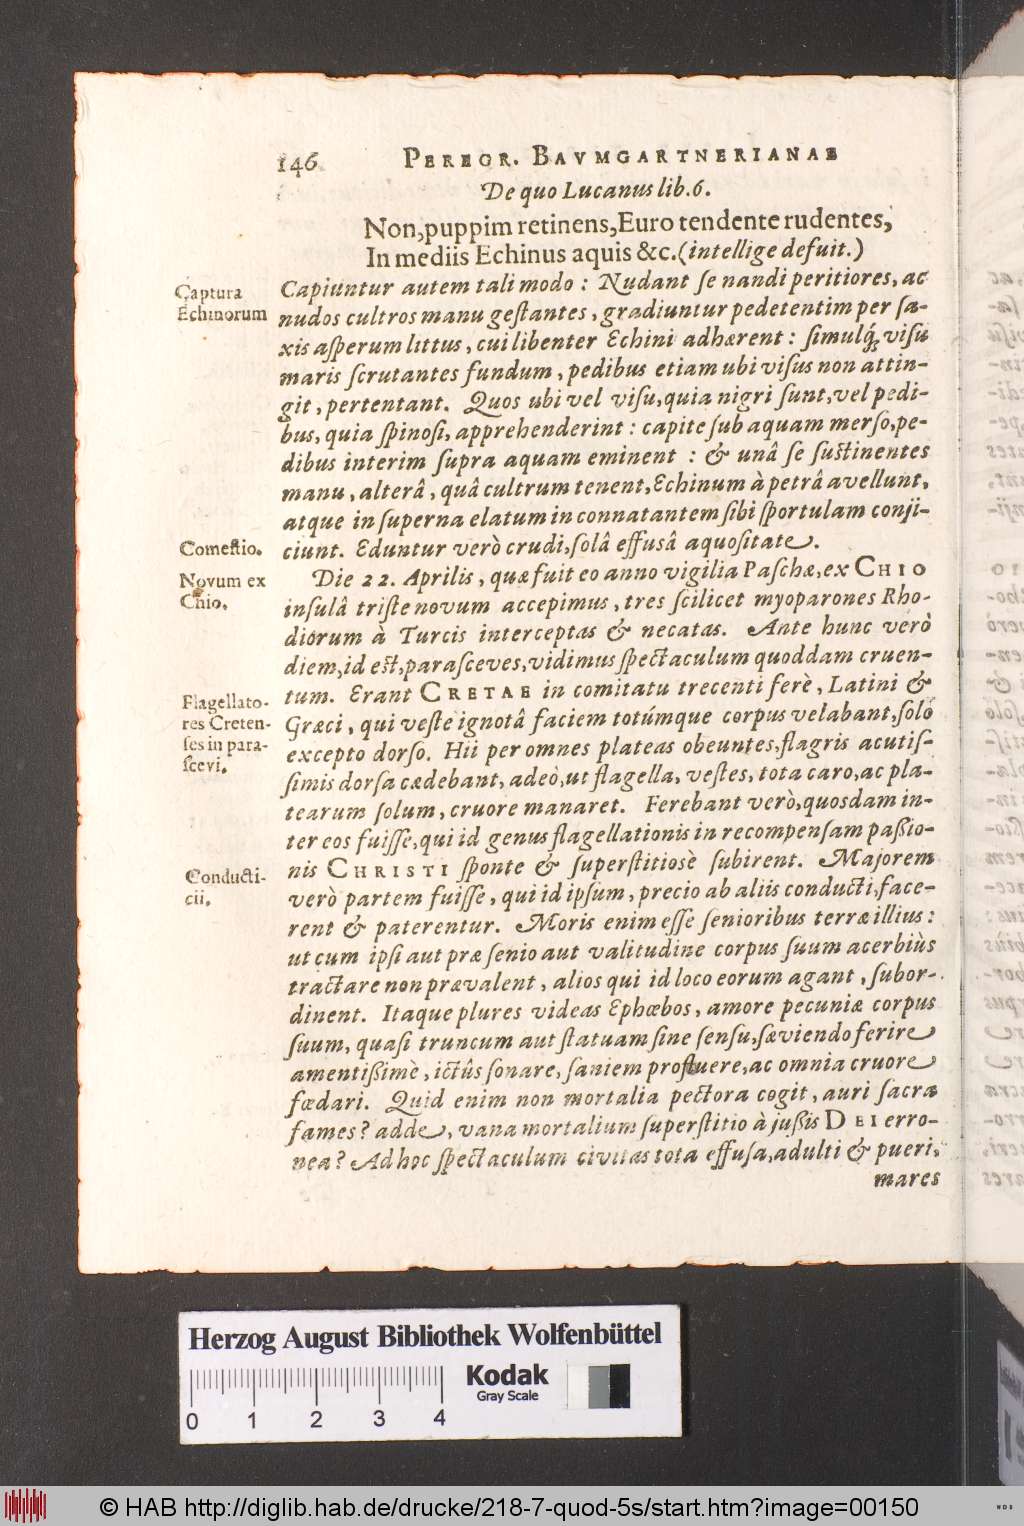 146 PEREGR. BAVMGARTNERIANAE
De quo Lucanus lib. 6.
Non, puppim retinens, Euro tendente rudentes,
In mediis Echinus aquis &c. (intellige defuit.)
Captura
Echinorum
Capiuntur autem tali modo: Nudant ſe nandi peritiores, ac
nudos cultros manu geſtantes, gradiuntur pedetentim per ſa-
xis aſperum littus, cui libenter Echini adhærent: ſimulq́; viſu
maris ſcrutantes fundum, pedibus etiam ubi viſus non attin-
git, pertentant. Quos ubi vel viſu, quia nigri ſunt, vel pedi-
bus, quia ſpinoſi, apprehenderint: capite ſub aquam merſo, pe-
dibus interim ſupra aquam eminent: & unâ ſe ſuſtinentes
manu, alterâ, quâ cultrum tenent, Echinum à petrâ avellunt,
atque in ſuperna elatum in connatantem ſibi ſportulam conji-
Comeſtio.
ciunt. Eduntur verò crudi, ſolâ effuſâ aquoſitate.
Novum ex
Chio.
Die 22. Aprilis, quæ fuit eo anno vigilia Paſchæ, ex CHIO
inſulâ triſte novum accepimus, tres ſcilicet myoparones Rho-
diorum à Turcis interceptas & necatas. Ante hunc verò
diem, id eſt, paraſceves, vidimus ſpectaculum quoddam cruen-
Flagellato-
res Creten-
ſes in para-
ſcevi.
tum. Erant CRETAE in comitatu trecenti ferè, Latini &
Græci, qui veſte ignotâ faciem totúmque corpus velabant, ſolo
excepto dorſo. Hii per omnes plateas obeuntes, flagris acutiſ-
ſimis dorſa cædebant, adeò, ut flagella, veſtes, tota caro, ac pla-
tearum ſolum, cruore manaret. Ferebant verò, quosdam in-
ter eos fuiſſe, qui id genus flagellationis in recompenſam paßio-
nis CHRISTI ſponte & ſuperſtitiosè ſubirent. Majorem
Conducti-
cii.
verò partem fuiſſe, qui id ipſum, precio ab aliis conducti, face-
rent & paterentur. Moris enim eſſe ſenioribus terræ illius:
ut cum ipſi aut præ ſenio aut valitudine corpus ſuum acerbiùs
tractare non prævalent, alios qui id loco eorum agant, ſubor-
dinent. Itaque plures videas Ephœbos, amore pecuniæ corpus
ſuum, quaſi truncum aut ſtatuam ſine ſenſu, ſæviendo ferire
amentißimè, ictûs ſonare, ſaniem profluere, ac omnia cruore
fœdari. Quid enim non mortalia pectora cogit, auri ſacra
fames? adde, vana mortalium ſuperſtitio à jußis DEI erro-
nea? Ad hoc ſpectaculum civitas tota effuſa, adulti & pueri,
mares
Herzog August Bibliothek Wolfenbüttel
Kodak
Gray Scale
0 1 2 3 4
© HAB http://diglib.hab.de/drucke/218-7-quod-5s/start.htm?image=00150